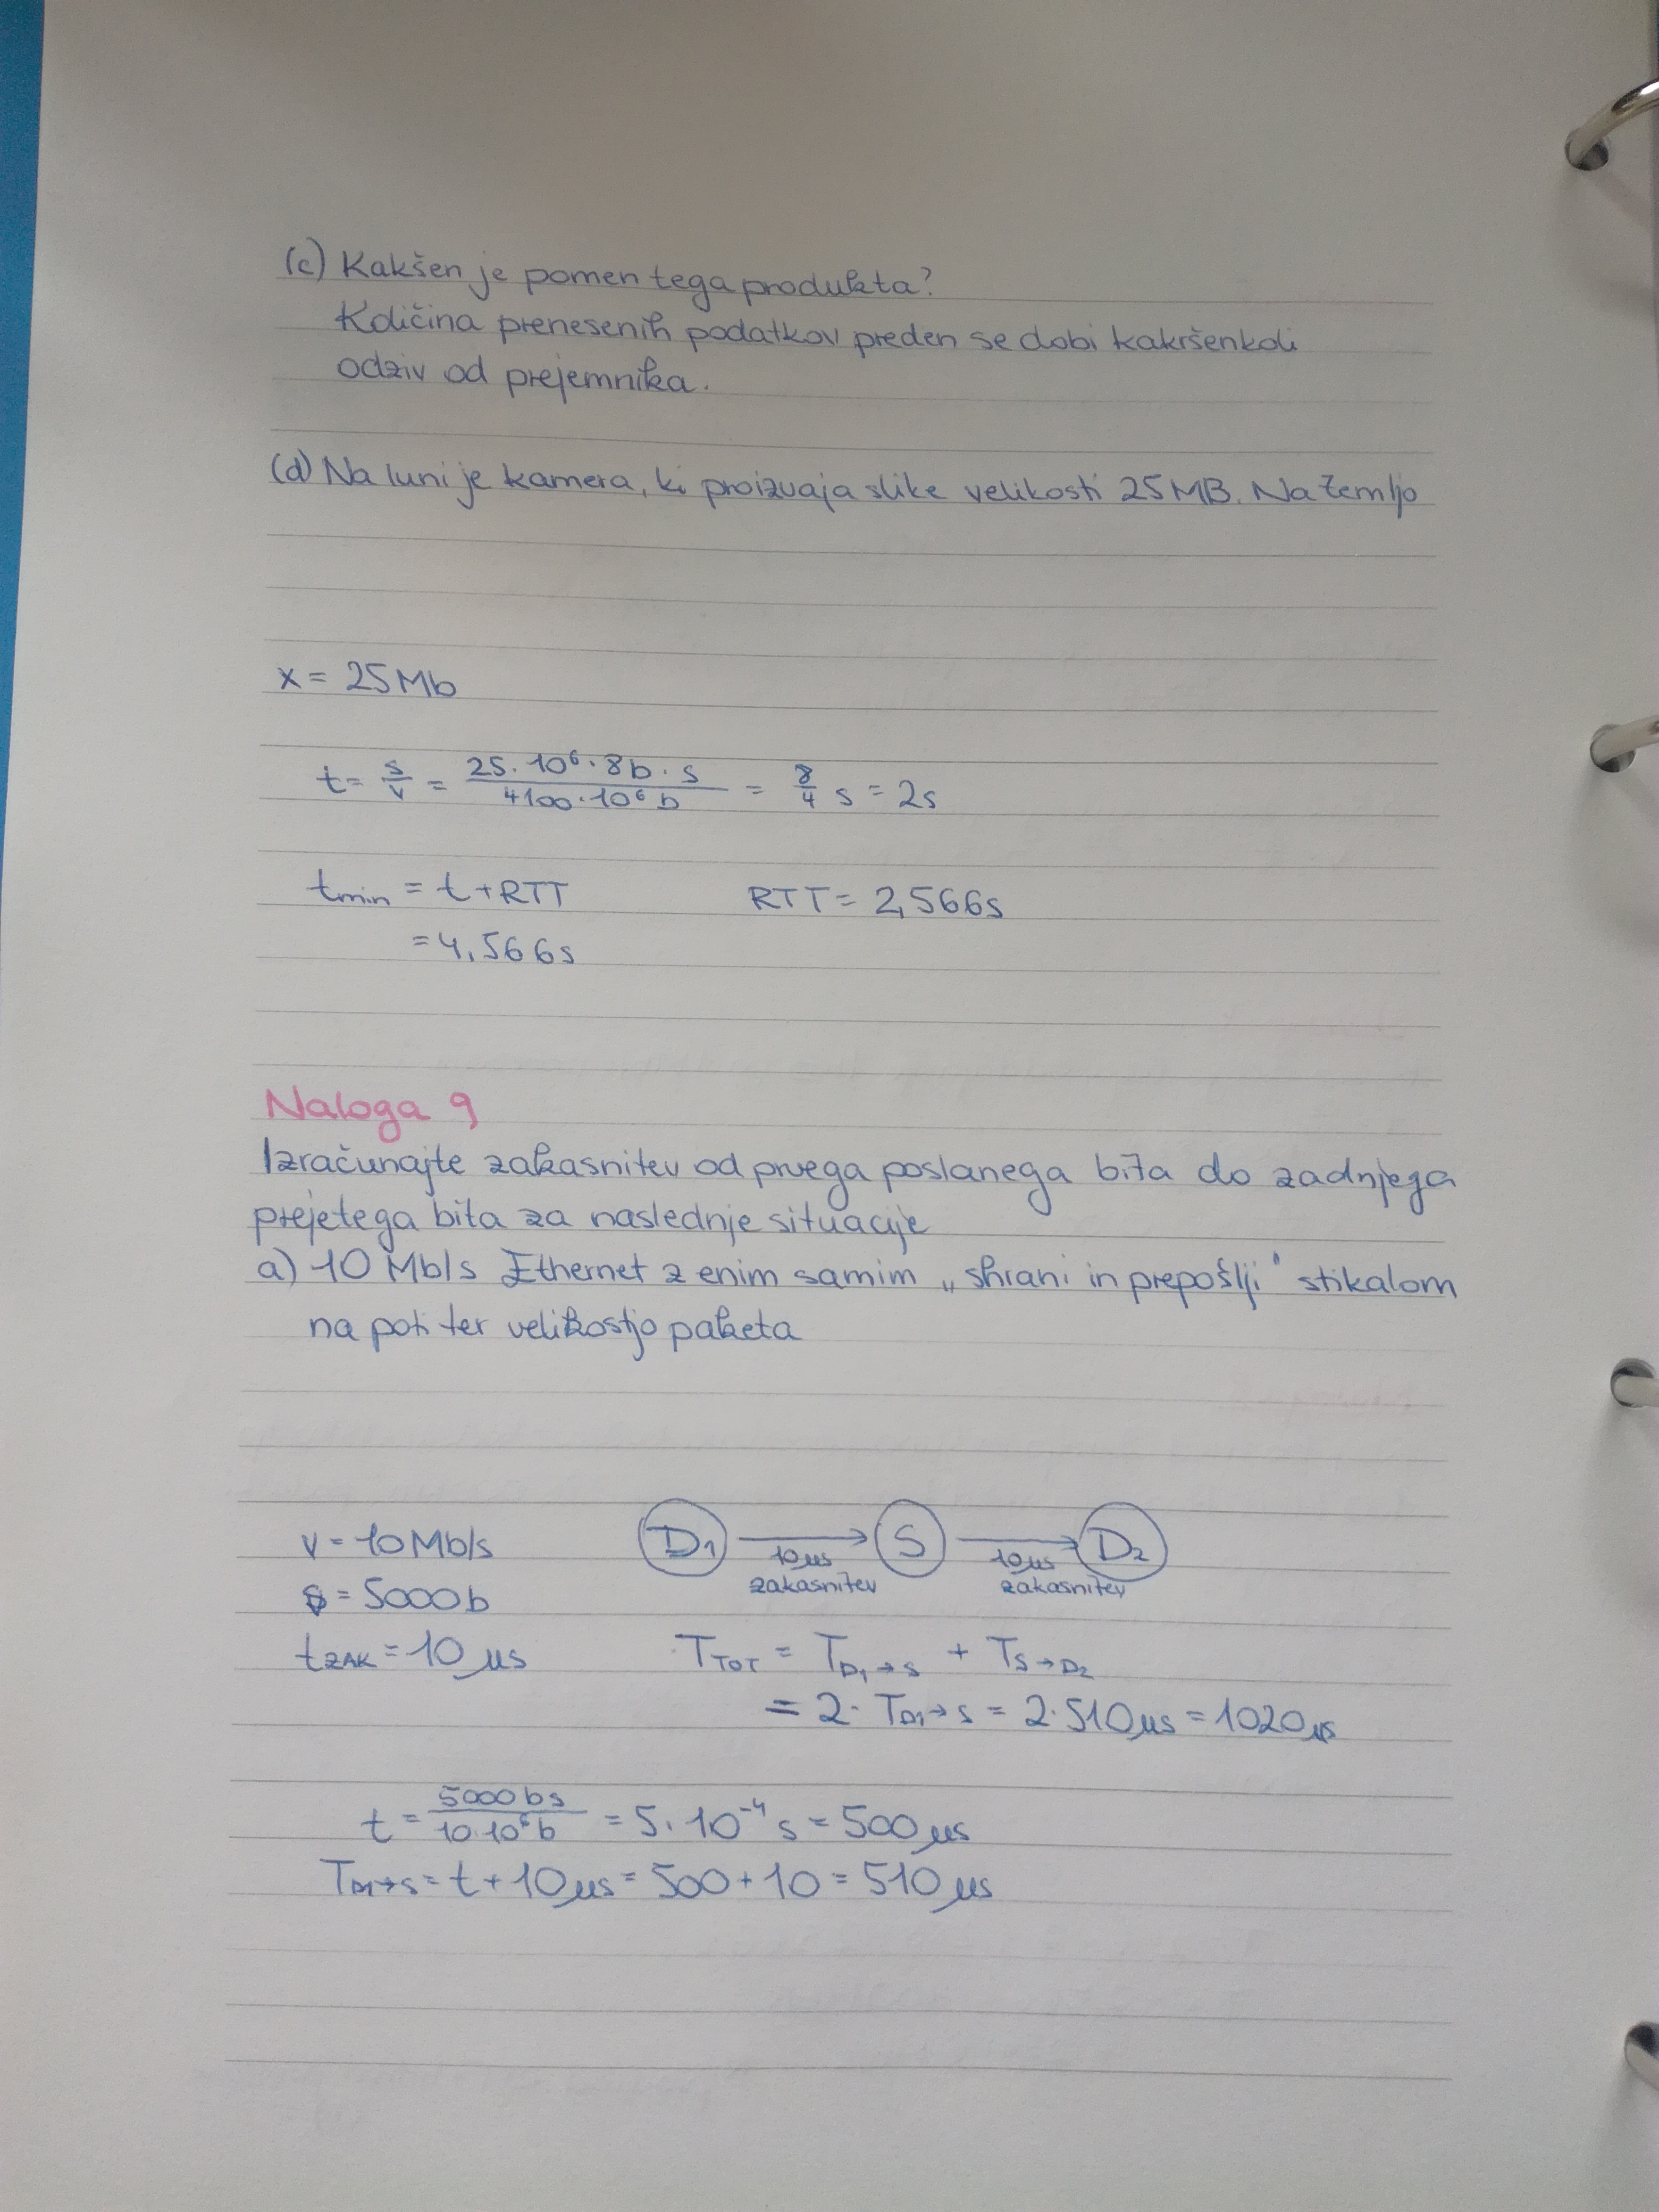 (c) Kakšen je pomen tega produkta?
Količina prenesenih podatkov preden se dobi kakršenkoli
odziv od prejemnika.
(d) Na luni je kamera, ki proizvaja slike velikosti 25MB. Na Zemljo
x = 25Mb
t = s/v = 25·10⁶·8b·s / 4100·10⁶b = 8/4 s = 2s
tmin = t + RTT RTT = 2,566s
= 4,566s
Naloga 9
Izračunajte zakasnitev od prvega poslanega bita do zadnjega
prejetega bita za naslednje situacije
a) 10 Mb/s Ethernet z enim samim „shrani in prepošlji" stikalom
na poti ter velikostjo paketa
v = 10Mb/s D₁ → S → D₂
10µs 10µs
zakasnitev zakasnitev
s = 5000b
tZAK = 10 µs T_TOT = T_D₁→S + T_S→D₂
= 2· T_D1→S = 2·510µs = 1020µs
t = 5000bs / 10·10⁶b = 5·10⁻⁴ s = 500µs
T_D1→S = t + 10µs = 500 + 10 = 510µs